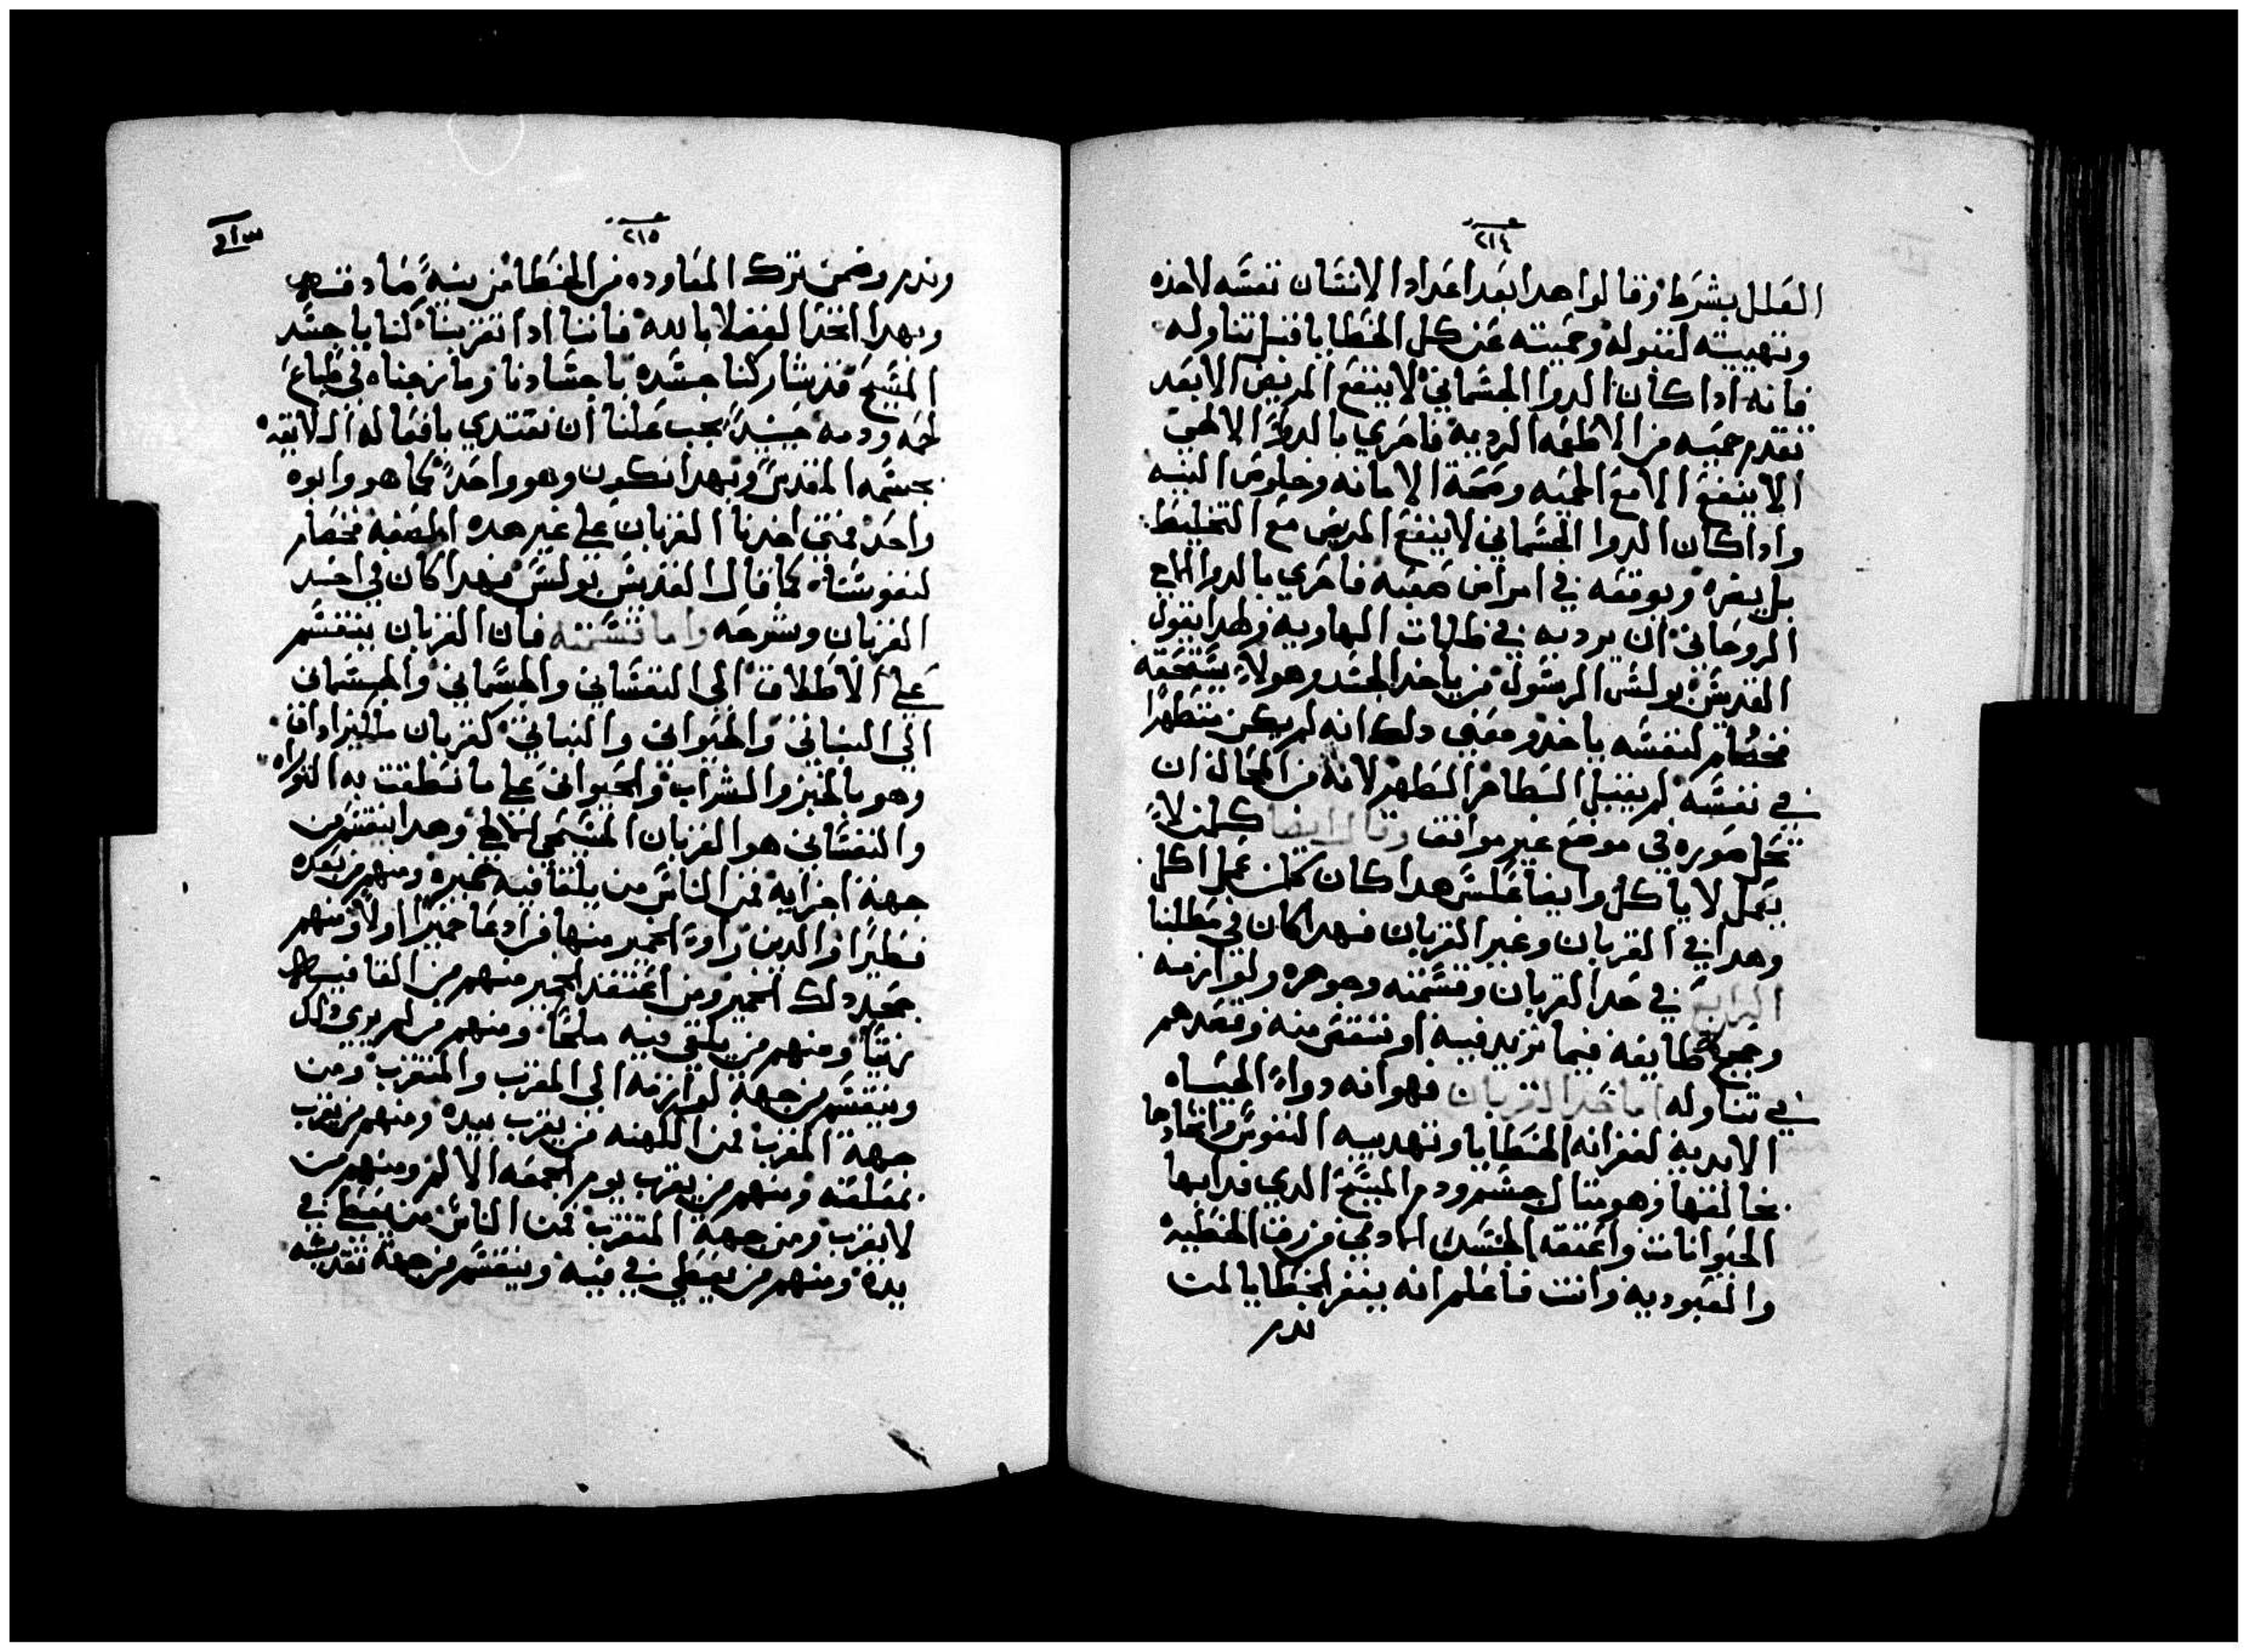 ٢١٤
العلل بشرط وقالوا هدا بعد اعداد الانسان نفسه لاخذه
وتهييته لقبوله وحميته عن كل الخطايا قبل تناوله
فانه ادا كان الدوا الجسماني لا ينفع المريض الا بعد
تقدم حميه من الاطعمه الرديه فاحري بالدوا الالهي
الا ينفع الا مع الحميه وصحة الامانه وخلوص النيه
وادا كان الدوا الجسماني لا ينفع المريض مع التخليط
بل يضره ويوقعه في امراض صعبه فاحري بالدوا
الروحاني ان يرديه في ظلمات الهاويه ولهدا يقول
القديس بولس الرسول من ياخد الجسد وهو لا يستحقه
لنفسه ياخد ومعني دلك انه لم يكن متطهرا
في نفسه لم يقبل الطاهر المطهر لانه من المحال ان
تحل صوره في موضع غير موافق وقال ايضا كلمن لا
يعمل لا ياكل وايضا عكس هدا كان كلمن عمل اكل
وهدا في القربان وغير القربان فهدا كان في مطلبنا
الرابع في حد القربان وقسمته وجوهره ولوازمه
وحجج كل طايفه فيما تزيد فيه او تنقص منه وقصدهم
في تناوله اما حد القربان فهو انه دواء الحياه
الابديه لغفرانه الخطايا وتهديبه النفوس واتحادها
بخالقها وهو مثال جسم ودم المسيح الدي فدا بها
الحيوانات واعتقه الجنس الادمي من رق الخطيه
والعبوديه وانت فاعلم انه يغفر الخطايا لمن
ندم
٢١٥
وندم وضمن ترك المعاوده من الخطا من نيه صادقه
وبهدا اتخد الفضلا بالله فاننا ادا تقربنا كنا باجسد
المسيح قد شاركنا جسده باجسادنا ومازجناه في طباع
لحمه ودمه حينيد يجب علينا ان نقتدي بافعاله اللايقه
بجسمه المقدس وبهدا نكون وهو واحد كما هو وابوه
واحد فمتي اخدنا القربان علي غير هده الصفه فخصار
لنفوسنا كما قال القديس بولس فهدا كان في اخد
القربان وشرحه واما قسمته فان القربان ينقسم
علي الاطلاق الي النفساني والجسماني والجسماني
الي النباتي والحيواني والنباتي كقربان ملكيزاداق
وهو بالخبز والشراب والحيواني علي ما نطقت به التوراه
والنفساني هو القربان المسيحي وهدا ينقسم من
جهة اجزايه فمن الناس من يلقا فيه خميره ومنهم من يعده
فطيرا والدين راوه الخمير منها من ادعا خميرا اولا ومنهم
جحد دلك الخمير ومن اعتقد الخمير منهم من القا فيه
زيتا ومنهم من يلقي فيه ملحا ومنهم من لم يري دلك
وينقسم من جهة لوازمه الي المقرب والمتقرب ومن
جهة المقرب فمن الكهنه من يقرب بيده ومنهم من يقرب
بملعقه ومنهم من يقرب يوم الجمعه الالام ومنهم من
لا يقرب ومن جهة المتقرب فمن الناس من يعطي في
يده ومنهم من يعطي في فيه وينقسم من جهة تقديسه